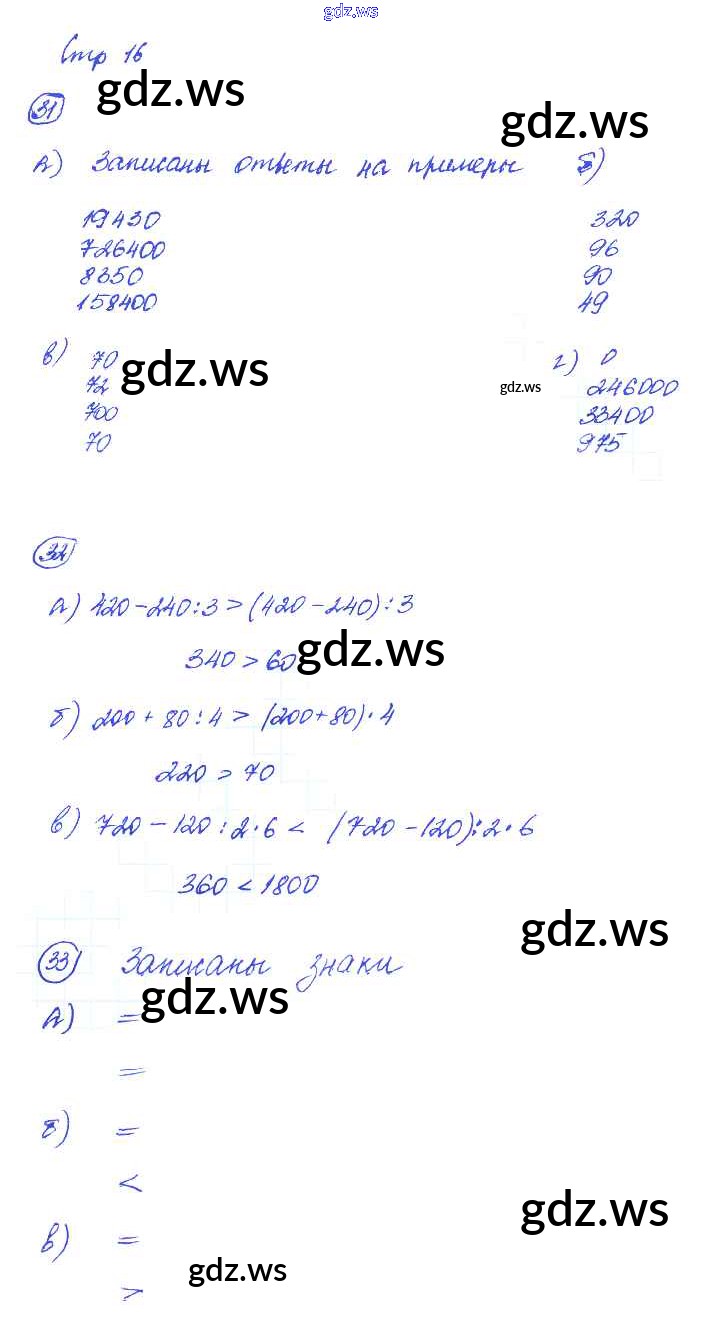 gdz.ws
Стр 16
gdz.ws
31
gdz.ws
А) Записаны ответы на примеры б)
19430 320
726400 96
8350 90
158400 49
в) 70 г) 0
gdz.ws
72 246000
gdz.ws
700 33400
70 975
32
а) 420-240:3>(420-240):3
340>60
gdz.ws
б) 200+80:4>(200+80)·4
220>70
в) 720-120:2·6< (720-120):2·6
360<1800
gdz.ws
33 Записаны знаки
gdz.ws
А) =
=
б) =
<
gdz.ws
в) =
gdz.ws
>